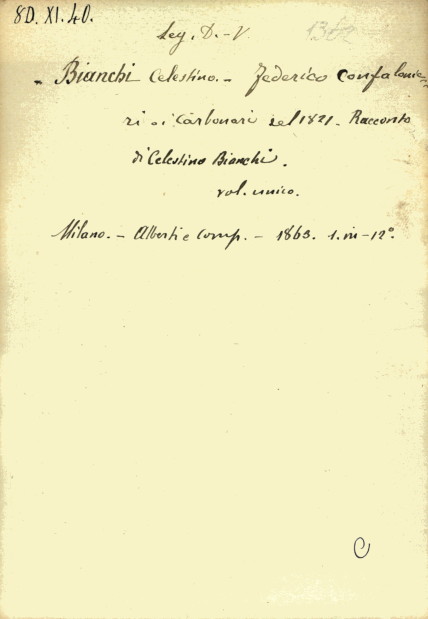 8D. XI. 40.
Leg. D.-V.
- Bianchi Celestino. - Federico Confalonie-
ri o i Carbonari nel 1821. Racconto
di Celestino Bianchi.
vol. unico.
Milano. - Alberti e Comp. - 1863. 1. in-12°.
C